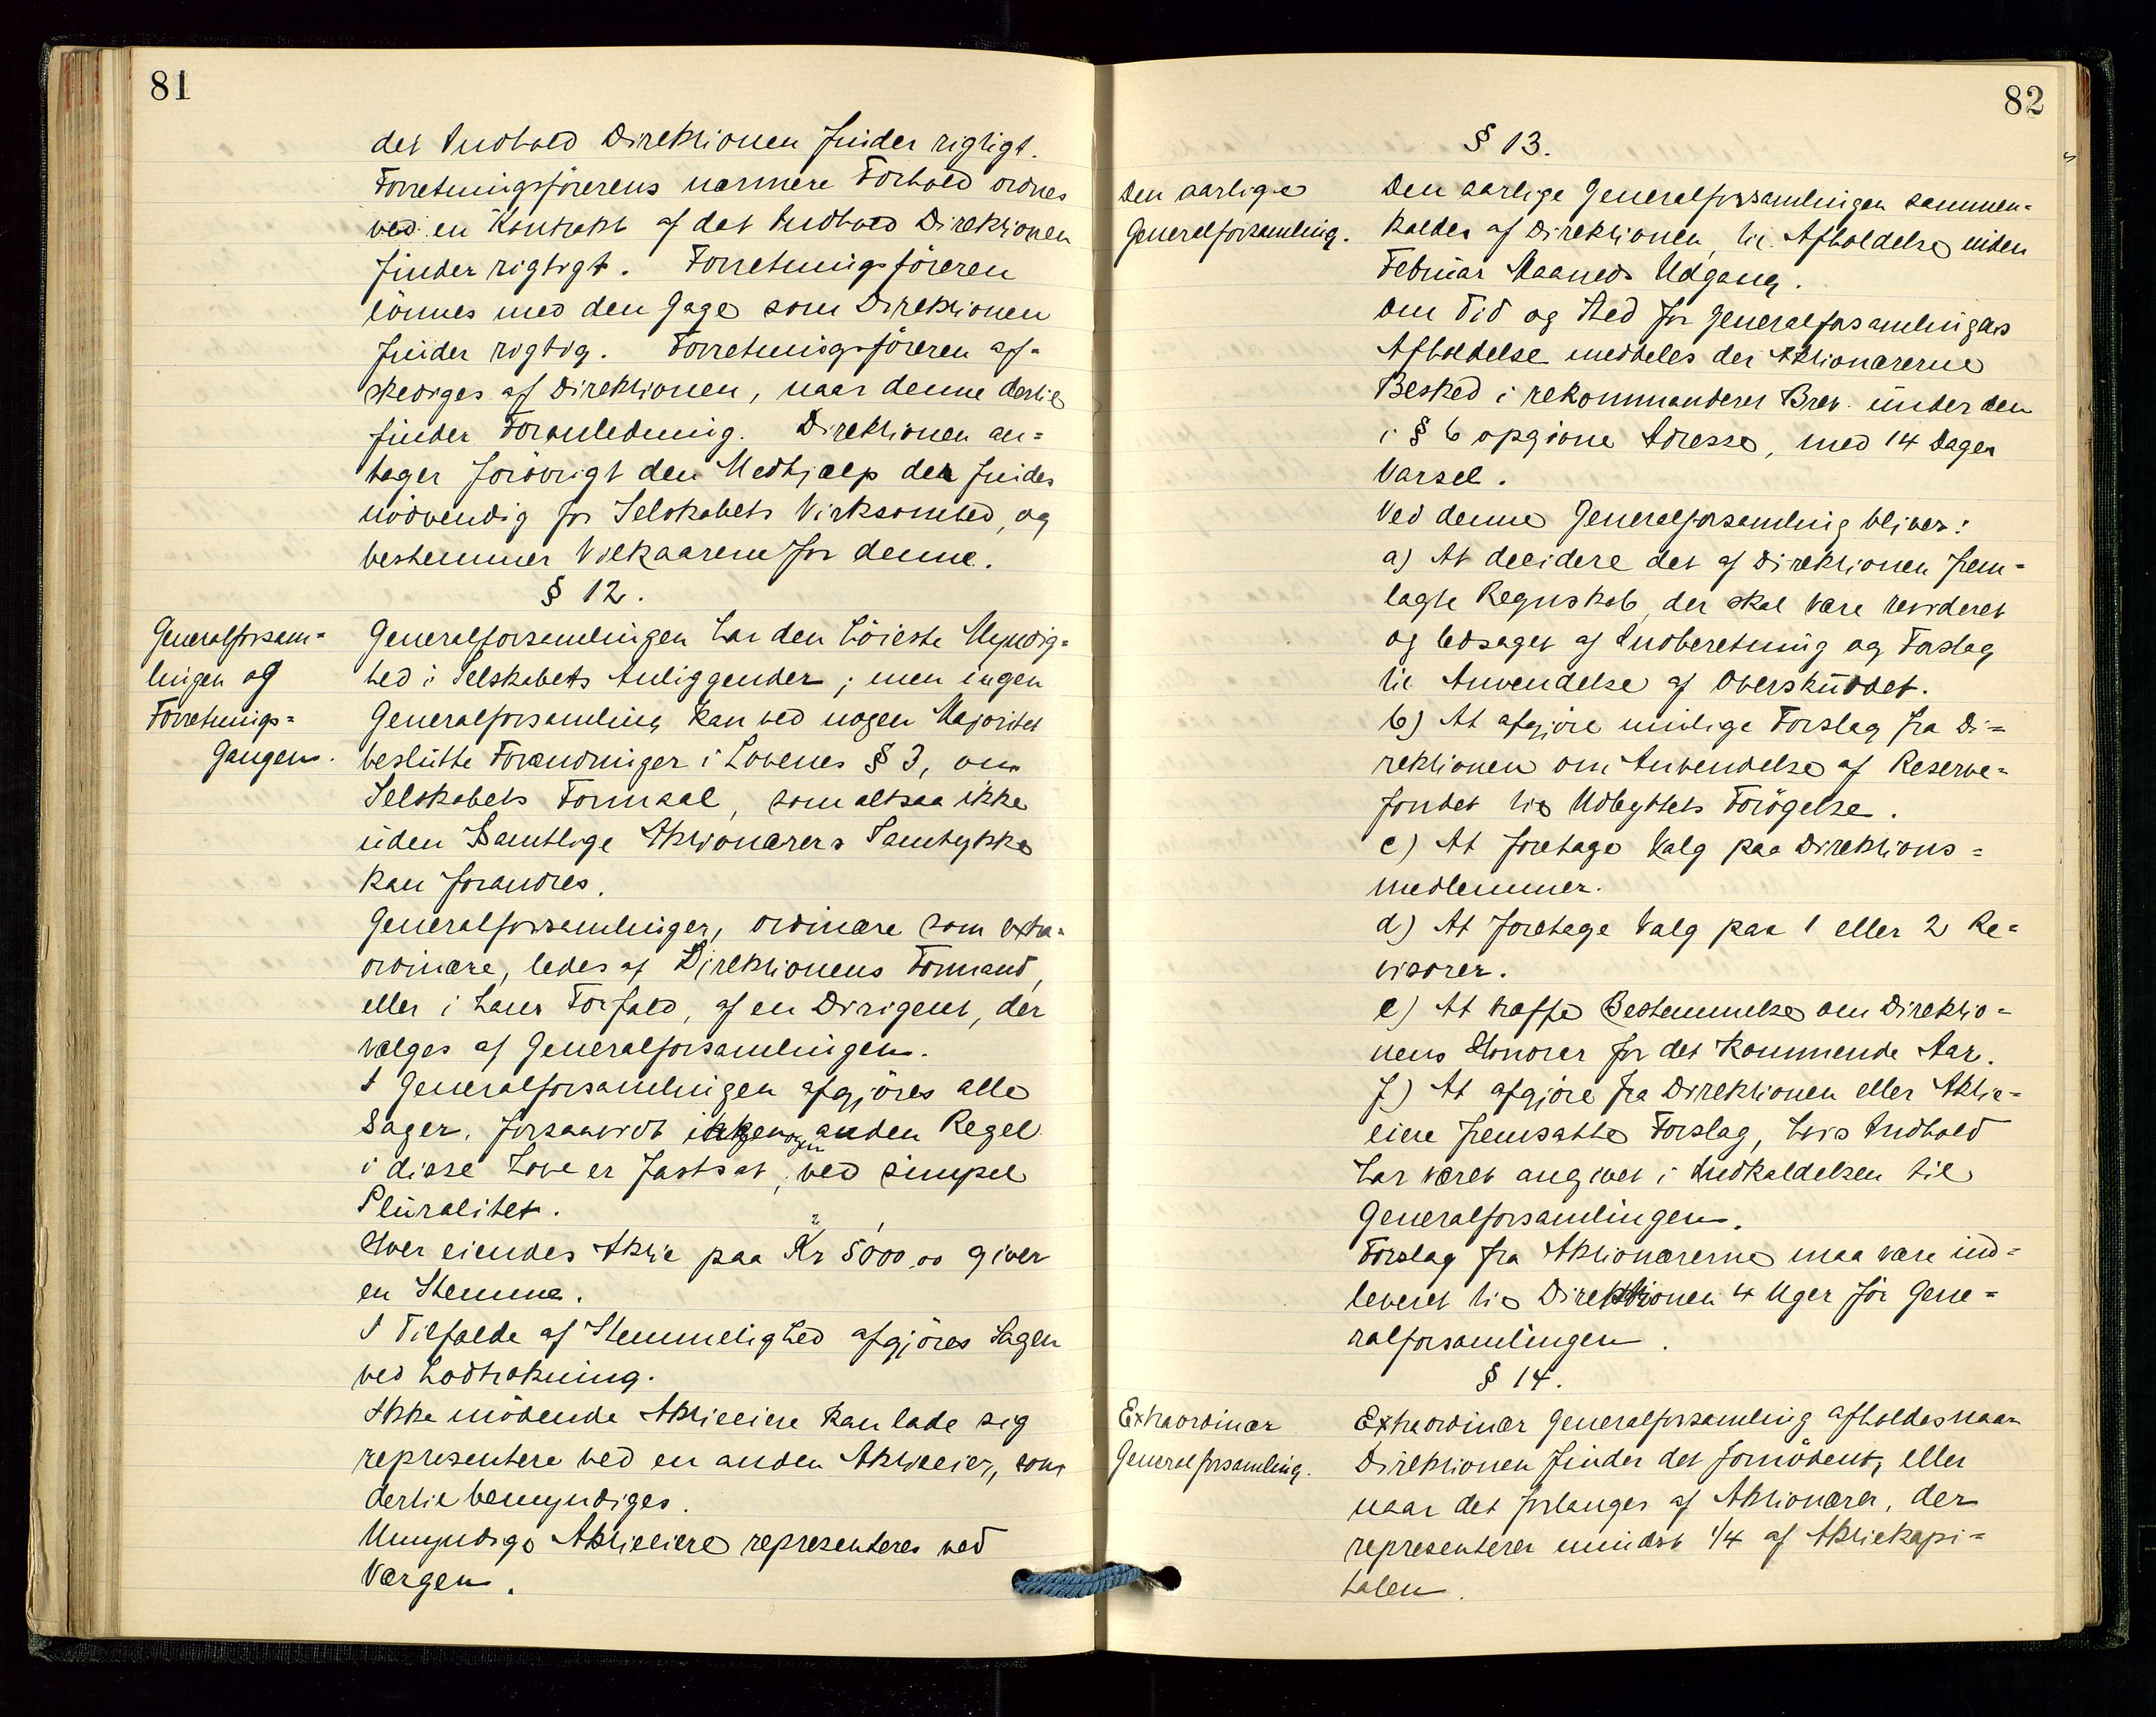 81
det Indhold Direktionen finder rigtigt.
Forretningsförerens nærmere Forhold ordnes
ved en Kontrakt af det Indhold Direktionen
finder rigtigt. Forretningsföreren
lönnes med den Gage som Direktionen
finder rigtig. Forretningsföreren af-
skediges af Direktionen, naar denne dertil
finder Foranledning. Direktionen an=
tager forövrigt den Medhjælp der findes
nödvendig for Selskabets Virksomhed, og
bestemmer Vilkaarene for denne.
§ 12.
Generalforsam=
lingen og
Forretnings=
Gangen.
Generalforsamlingen har den höieste Myndig=
hed i Selskabets Anliggender; men ingen
Generalforsamling kan ved nogen Majoritet
beslutte Forandringer i Lovenes § 3, om
Selskabets Formaal, som altsaa ikke
uden Samtlige Aktionærers Samtykke
kan forandres.
Generalforsamlinger, ordinære som extra=
ordinære, ledes af Direktionens Formand,
eller i hans Forfald, af en Dirigent, der
vælges af Generalforsamlingen.
I Generalforsamlingen afgjöres alle
Sager, forsaavidt ikke nogen anden Regel
i disse Love er fastsat, ved simpel
Pluralitet.
Hver eiendes Aktie paa Kr 5000,00 giver
en Stemme.
I Tilfælde af Stemmelighed afgjöres Sagen
ved Lodtrækning.
Ikke mödende Aktieeiere kan lade sig
repræsentere ved en anden Aktieeier, som
dertil bemyndiges.
Umyndige Aktieeiere repræsenteres ved
Værgen.
82
§ 13.
Den aarlige
Generalforsamling.
Den aarlige Generalforsamlingen sammen=
kaldes af Direktionen, til Afholdelse inden
Februar Maaneds Udgang.
Om Tid og Sted for Generalforsamlingens
Afholdelse meddeles der Aktionærerne
Besked i rekommanderet Brev under den
i § 6 opgivne Adresse, med 14 Dages
Varsel.
Ved denne Generalforsamling bliver:
a) At decidere det af Direktionen frem=
lagte Regnskab, der skal være revideret
og ledsaget af Indberetning og Forslag
til Anvendelse af Overskuddet.
b) At afgjöre mulige Forslag fra Di=
rektionen om Anvendelse af Reserve=
fondet til Udbyttets Forögelse.
c) At foretage Valg paa Direktions=
medlemmer.
d) At foretage Valg paa 1 eller 2 Re=
visorer.
e) At træffe Bestemmelse om Direktio=
nens Honorar for det kommende Aar.
f) At afgjöre fra Direktionen eller Aktie=
eiere fremsatte Forslag, hvis Indhold
har været angivet i Indkaldelsen til
Generalforsamlingen.
Forslag fra Aktionærerne maa være ind=
leveret til Direktionen 4 Uger för Gene=
ralforsamlingen.
§ 14.
Extraordinær
Generalforsamling.
Extraordinær Generalforsamling afholdes naar
Direktionen finder det fornödent, eller
naar det forlanges af Aktionærer, der
repræsenterer mindst 1/4 af Aktiekapi=
talen.